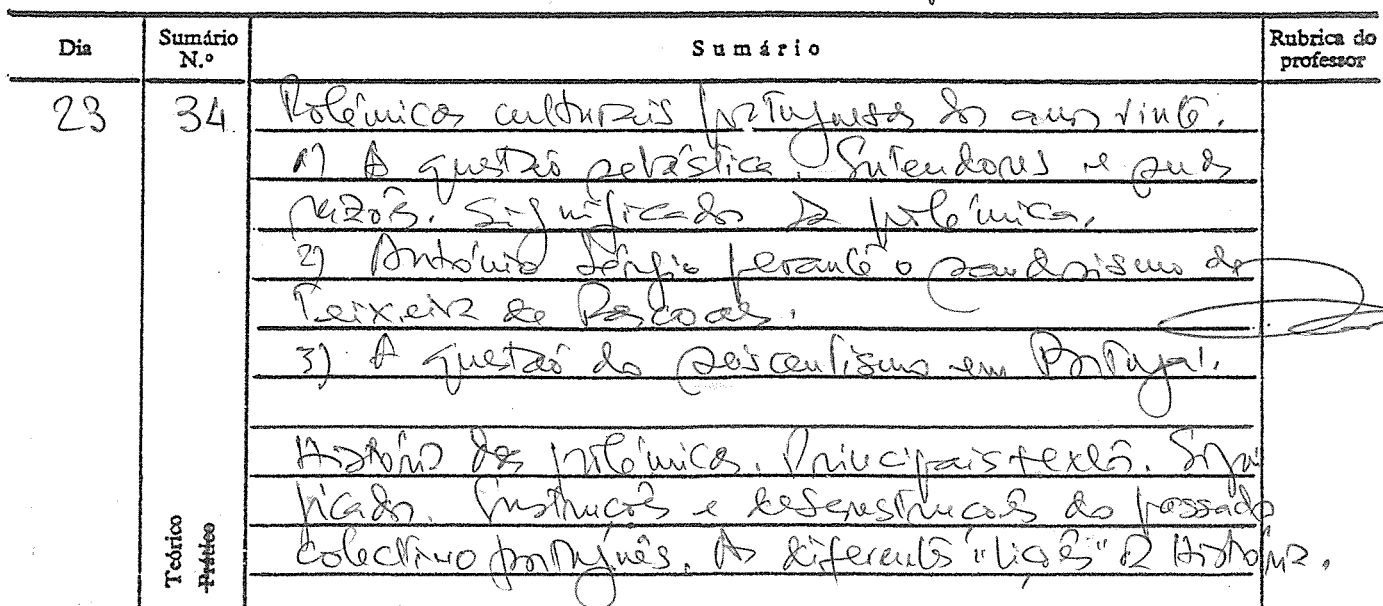 Dia Sumário N.º Sumário Rubrica do professor
23 34 Polémicas culturais portuguesas dos anos vinte.
1) A questão sebástica. Contendores e suas
razões. Significado da polémica.
2) António Sérgio perante o saudosismo de
Teixeira de Pascoaes.
3) A questão do seiscentismo em Portugal.
História das polémicas. Principais textos. Signi
ficado. Construções e desconstruções do passado
colectivo português. As diferentes "lições" da História.
Teórico
Prático